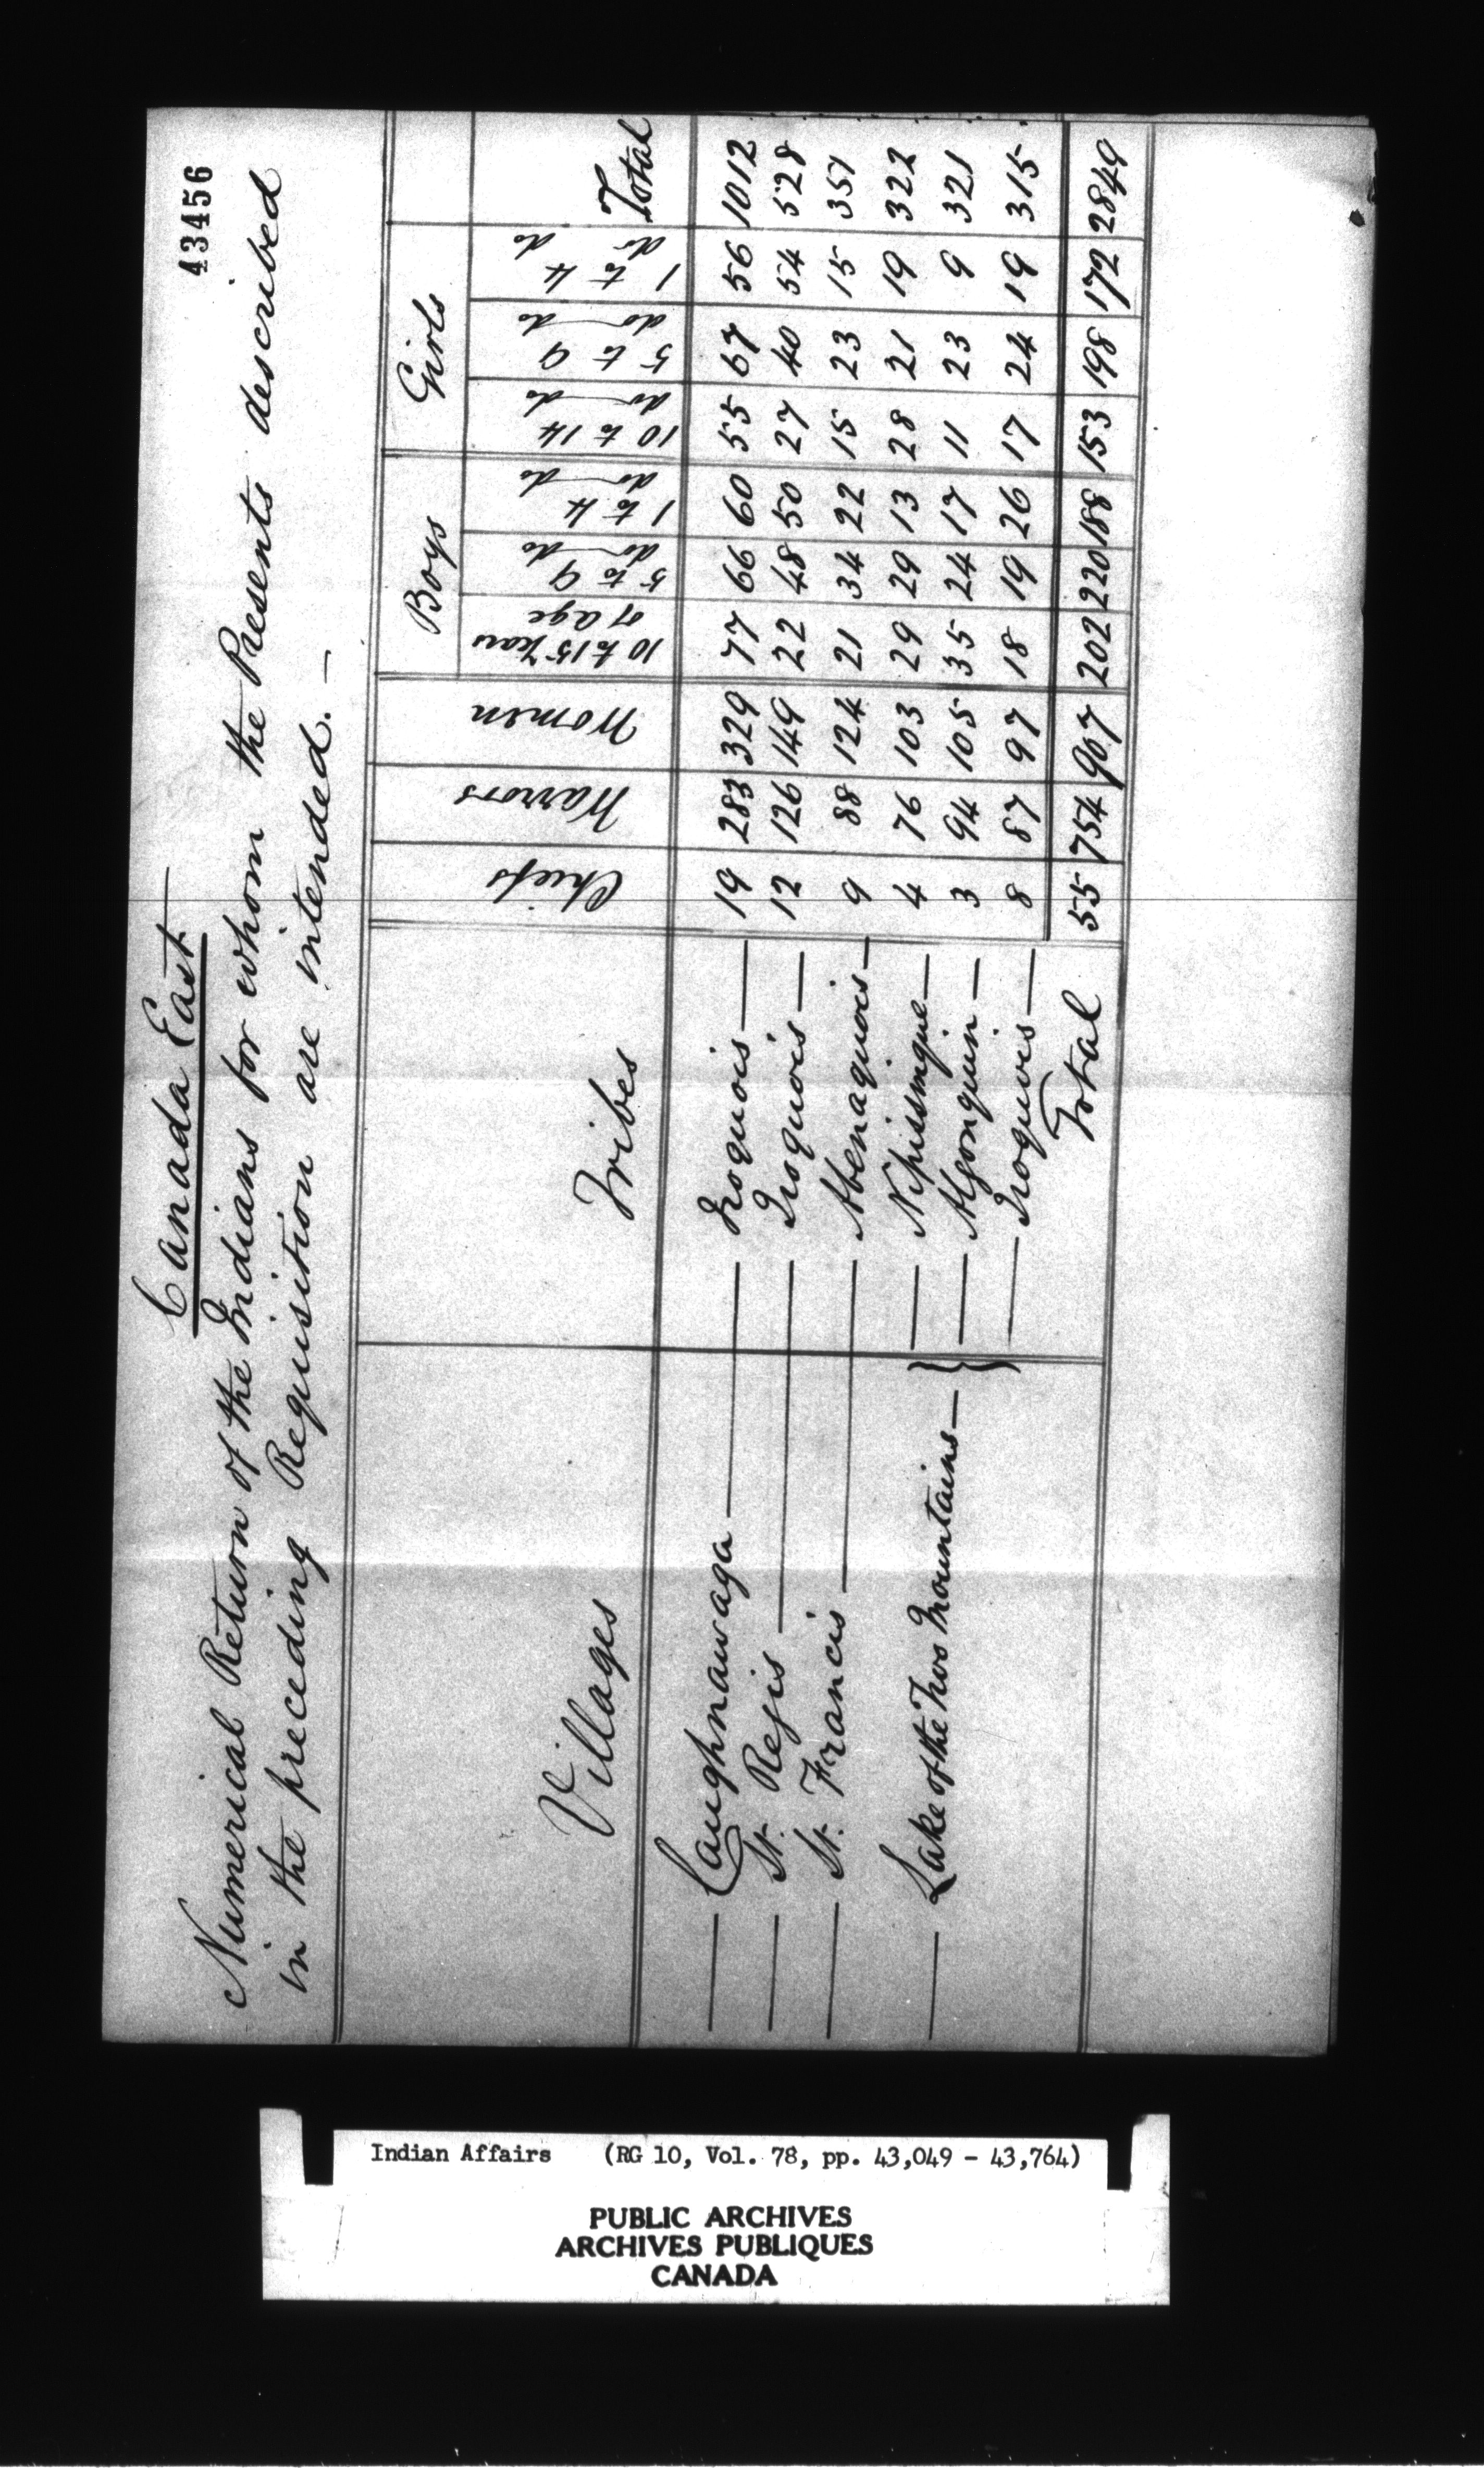 43456
Canada East
Numerical Return of the Indians for whom the Presents described
in the preceding Requisition are intended. —
Villages Tribes Chiefs Warriors Women Boys Girls Total
10 to 15 Years of age 5 to 9 do — do 1 to 4 do — do 10 to 14 do — do 5 to 9 do — do 1 to 4 do do
— Caughnawaga — Iroquois — 19 283 329 77 66 60 55 67 56 1012
— St. Regis — Iroquois — 12 126 149 22 48 50 27 40 54 528
— St. Francis — Abenaquois — 9 88 124 21 34 22 15 23 15 351
— Nipissingue — 4 76 103 29 29 13 28 21 19 322
— Lake of the Two Mountains — } — Algonquin — 3 94 105 35 24 17 11 23 9 321
— Iroquois — 8 87 97 18 19 26 17 24 19 315
Total 55 754 907 202 220 188 153 198 172 2849
Indian Affairs (RG 10, Vol. 78, pp. 43,049 - 43,764)
PUBLIC ARCHIVES
ARCHIVES PUBLIQUES
CANADA